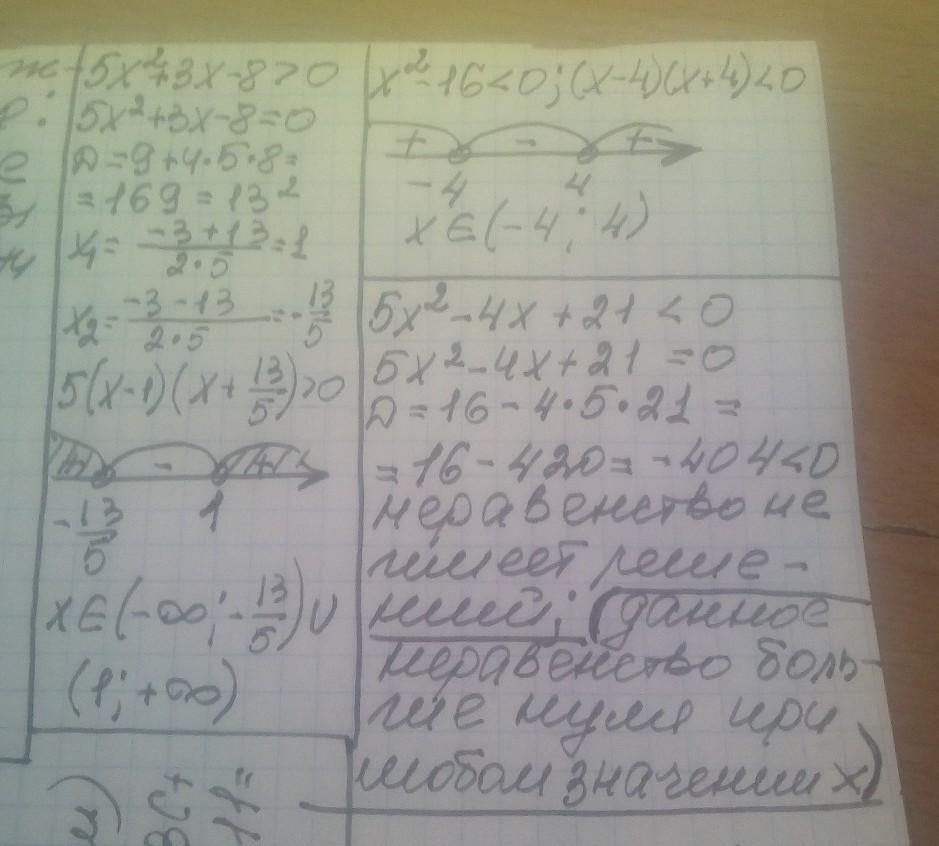 5x²+3x-8>0
5x²+3x-8=0
D=9+4·5·8=
=169=13²
x₁= (-3+13)/(2·5) =1
x₂= (-3-13)/(2·5) =-13/5
5(x-1)(x+13/5)>0
+ - +
-13/5 1
x∈(-∞;-13/5)∪
(1;+∞)
x²-16<0; (x-4)(x+4)<0
+ - +
-4 4
x∈(-4; 4)
5x²-4x+21<0
5x²-4x+21=0
D=16-4·5·21=
=16-420=-404<0
неравенство не
имеет реше-
ний; (данное
неравенство боль-
ше нуля при
любом значении x)